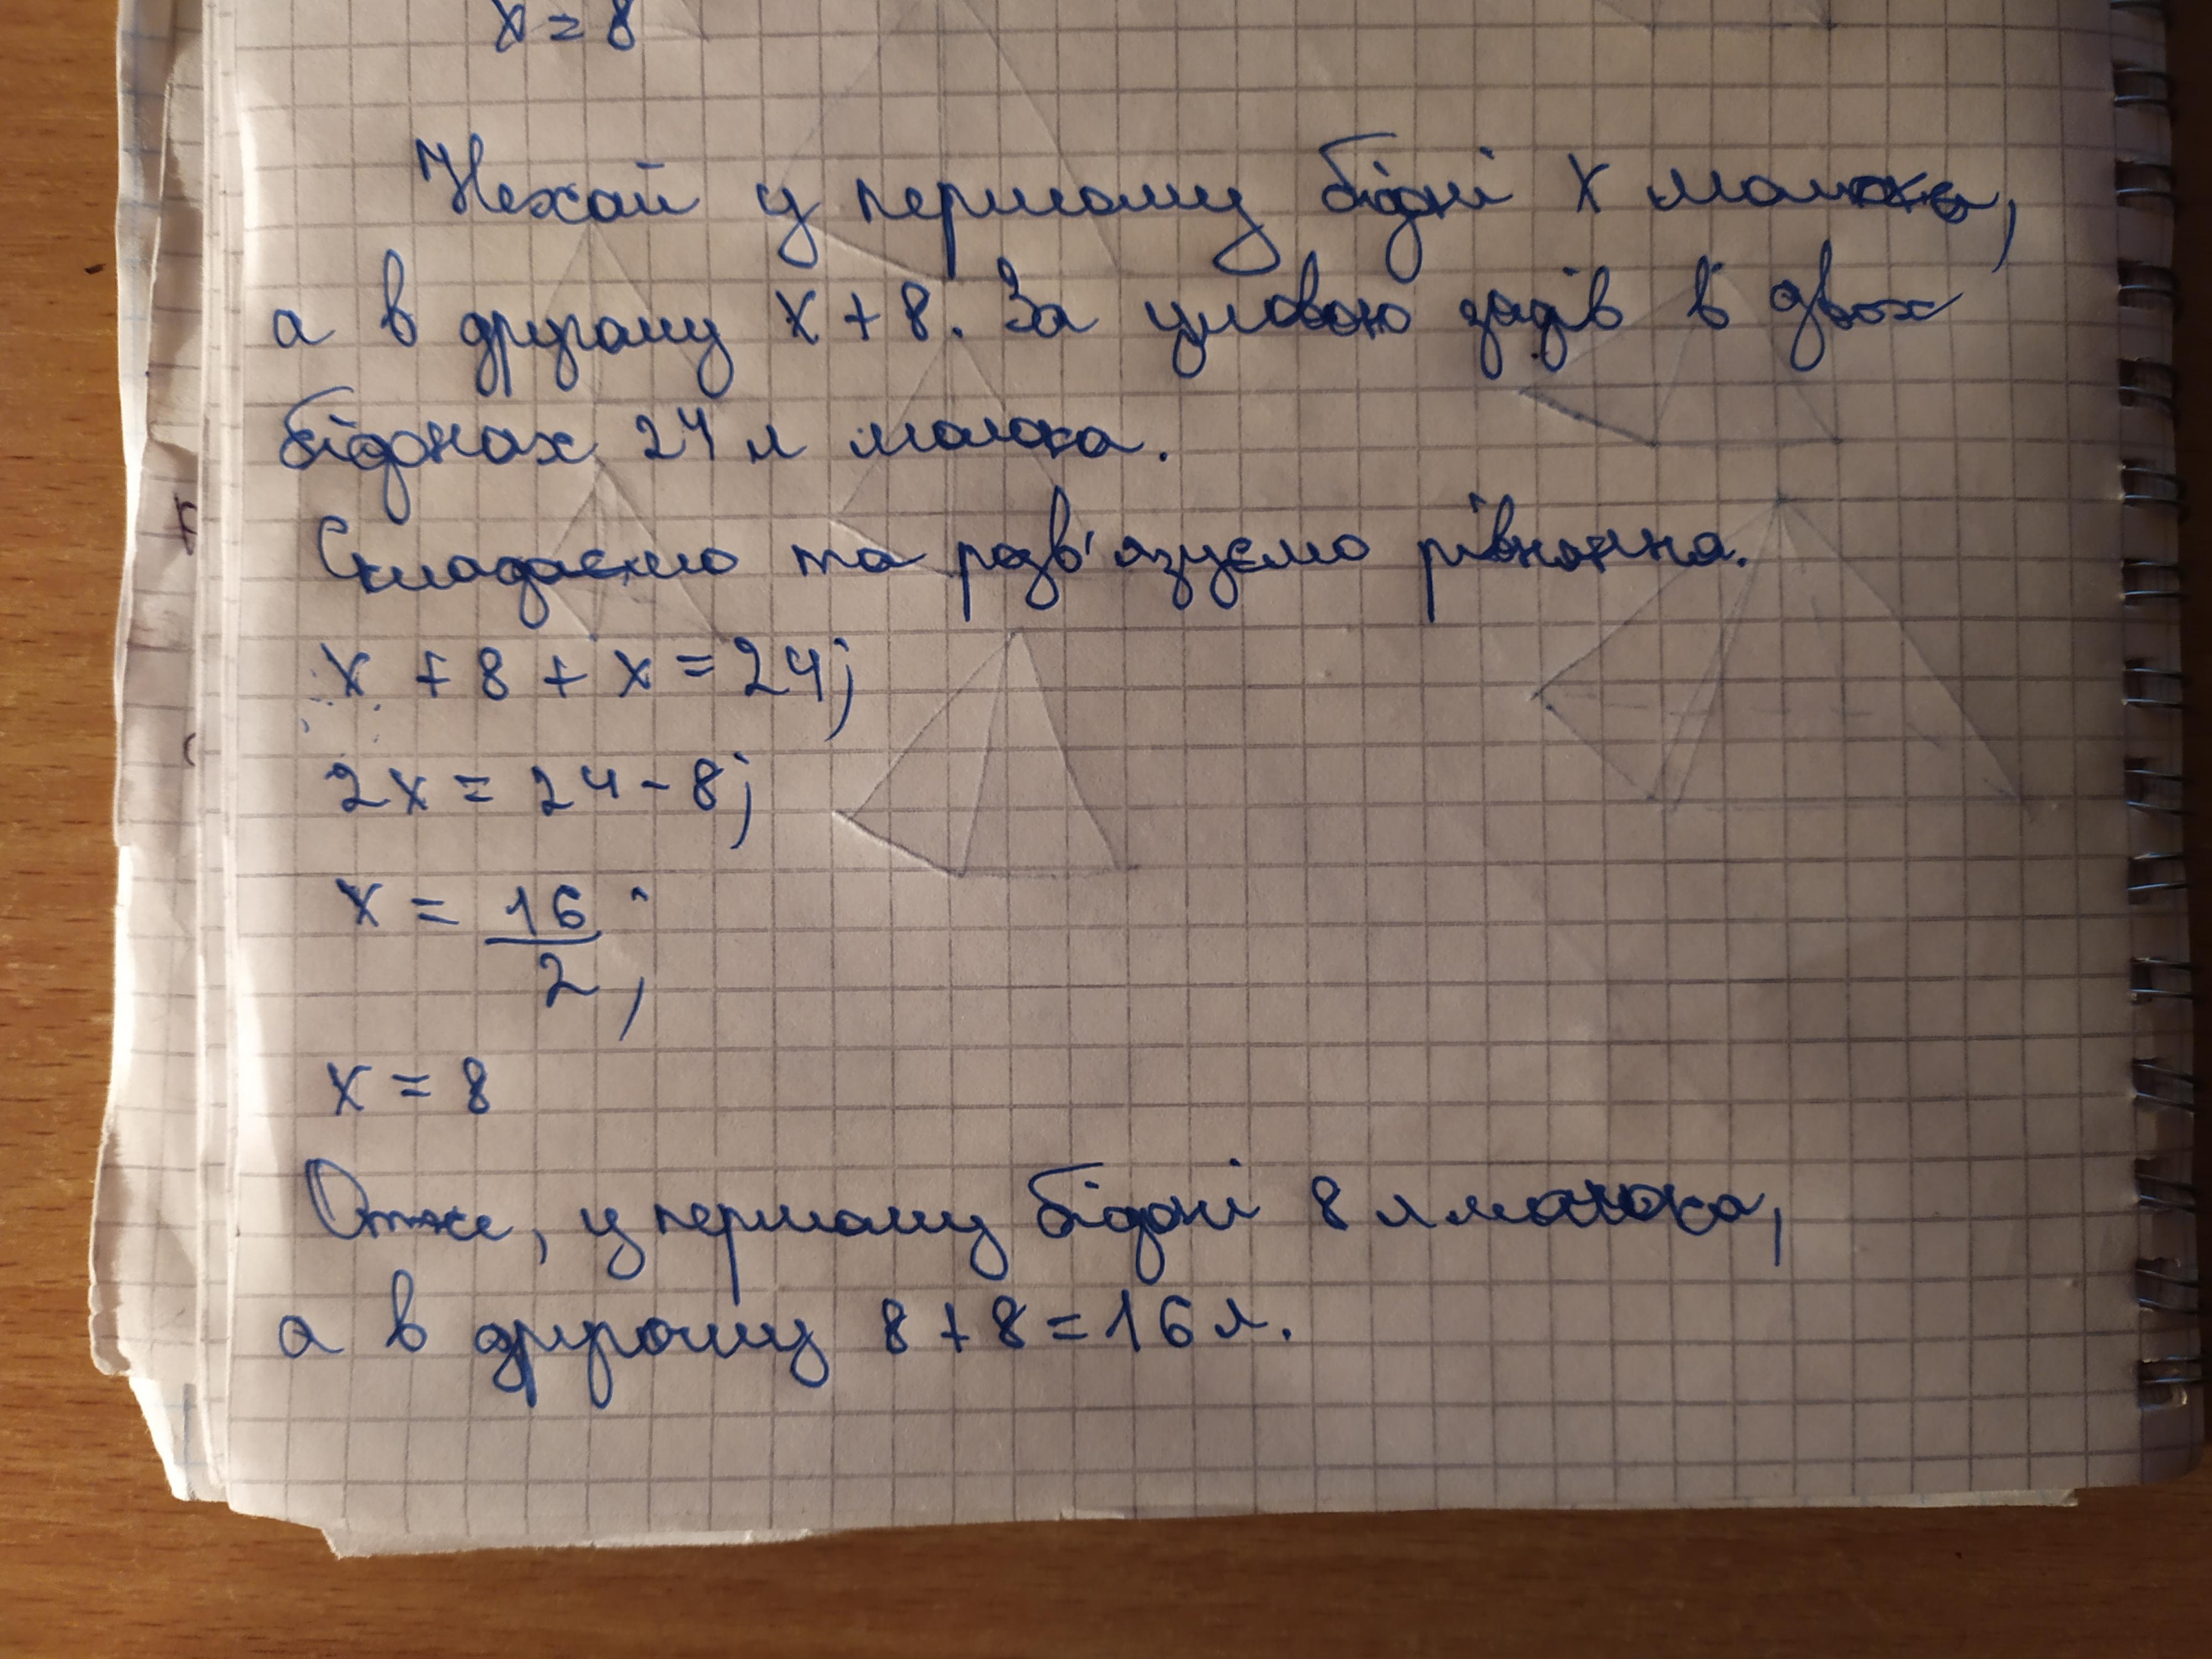 x = 8
Нехай у першому бідні x молока,
а в другому x + 8. За умовою задів в двох
бідонах 24 л молока.
Складаємо та розв'язуємо рівнянна.
x + 8 + x = 24;
2x = 24 - 8;
x = 16/2;
x = 8
Отже, у першому бідоні 8 л молока,
а в другому 8 + 8 = 16 л.